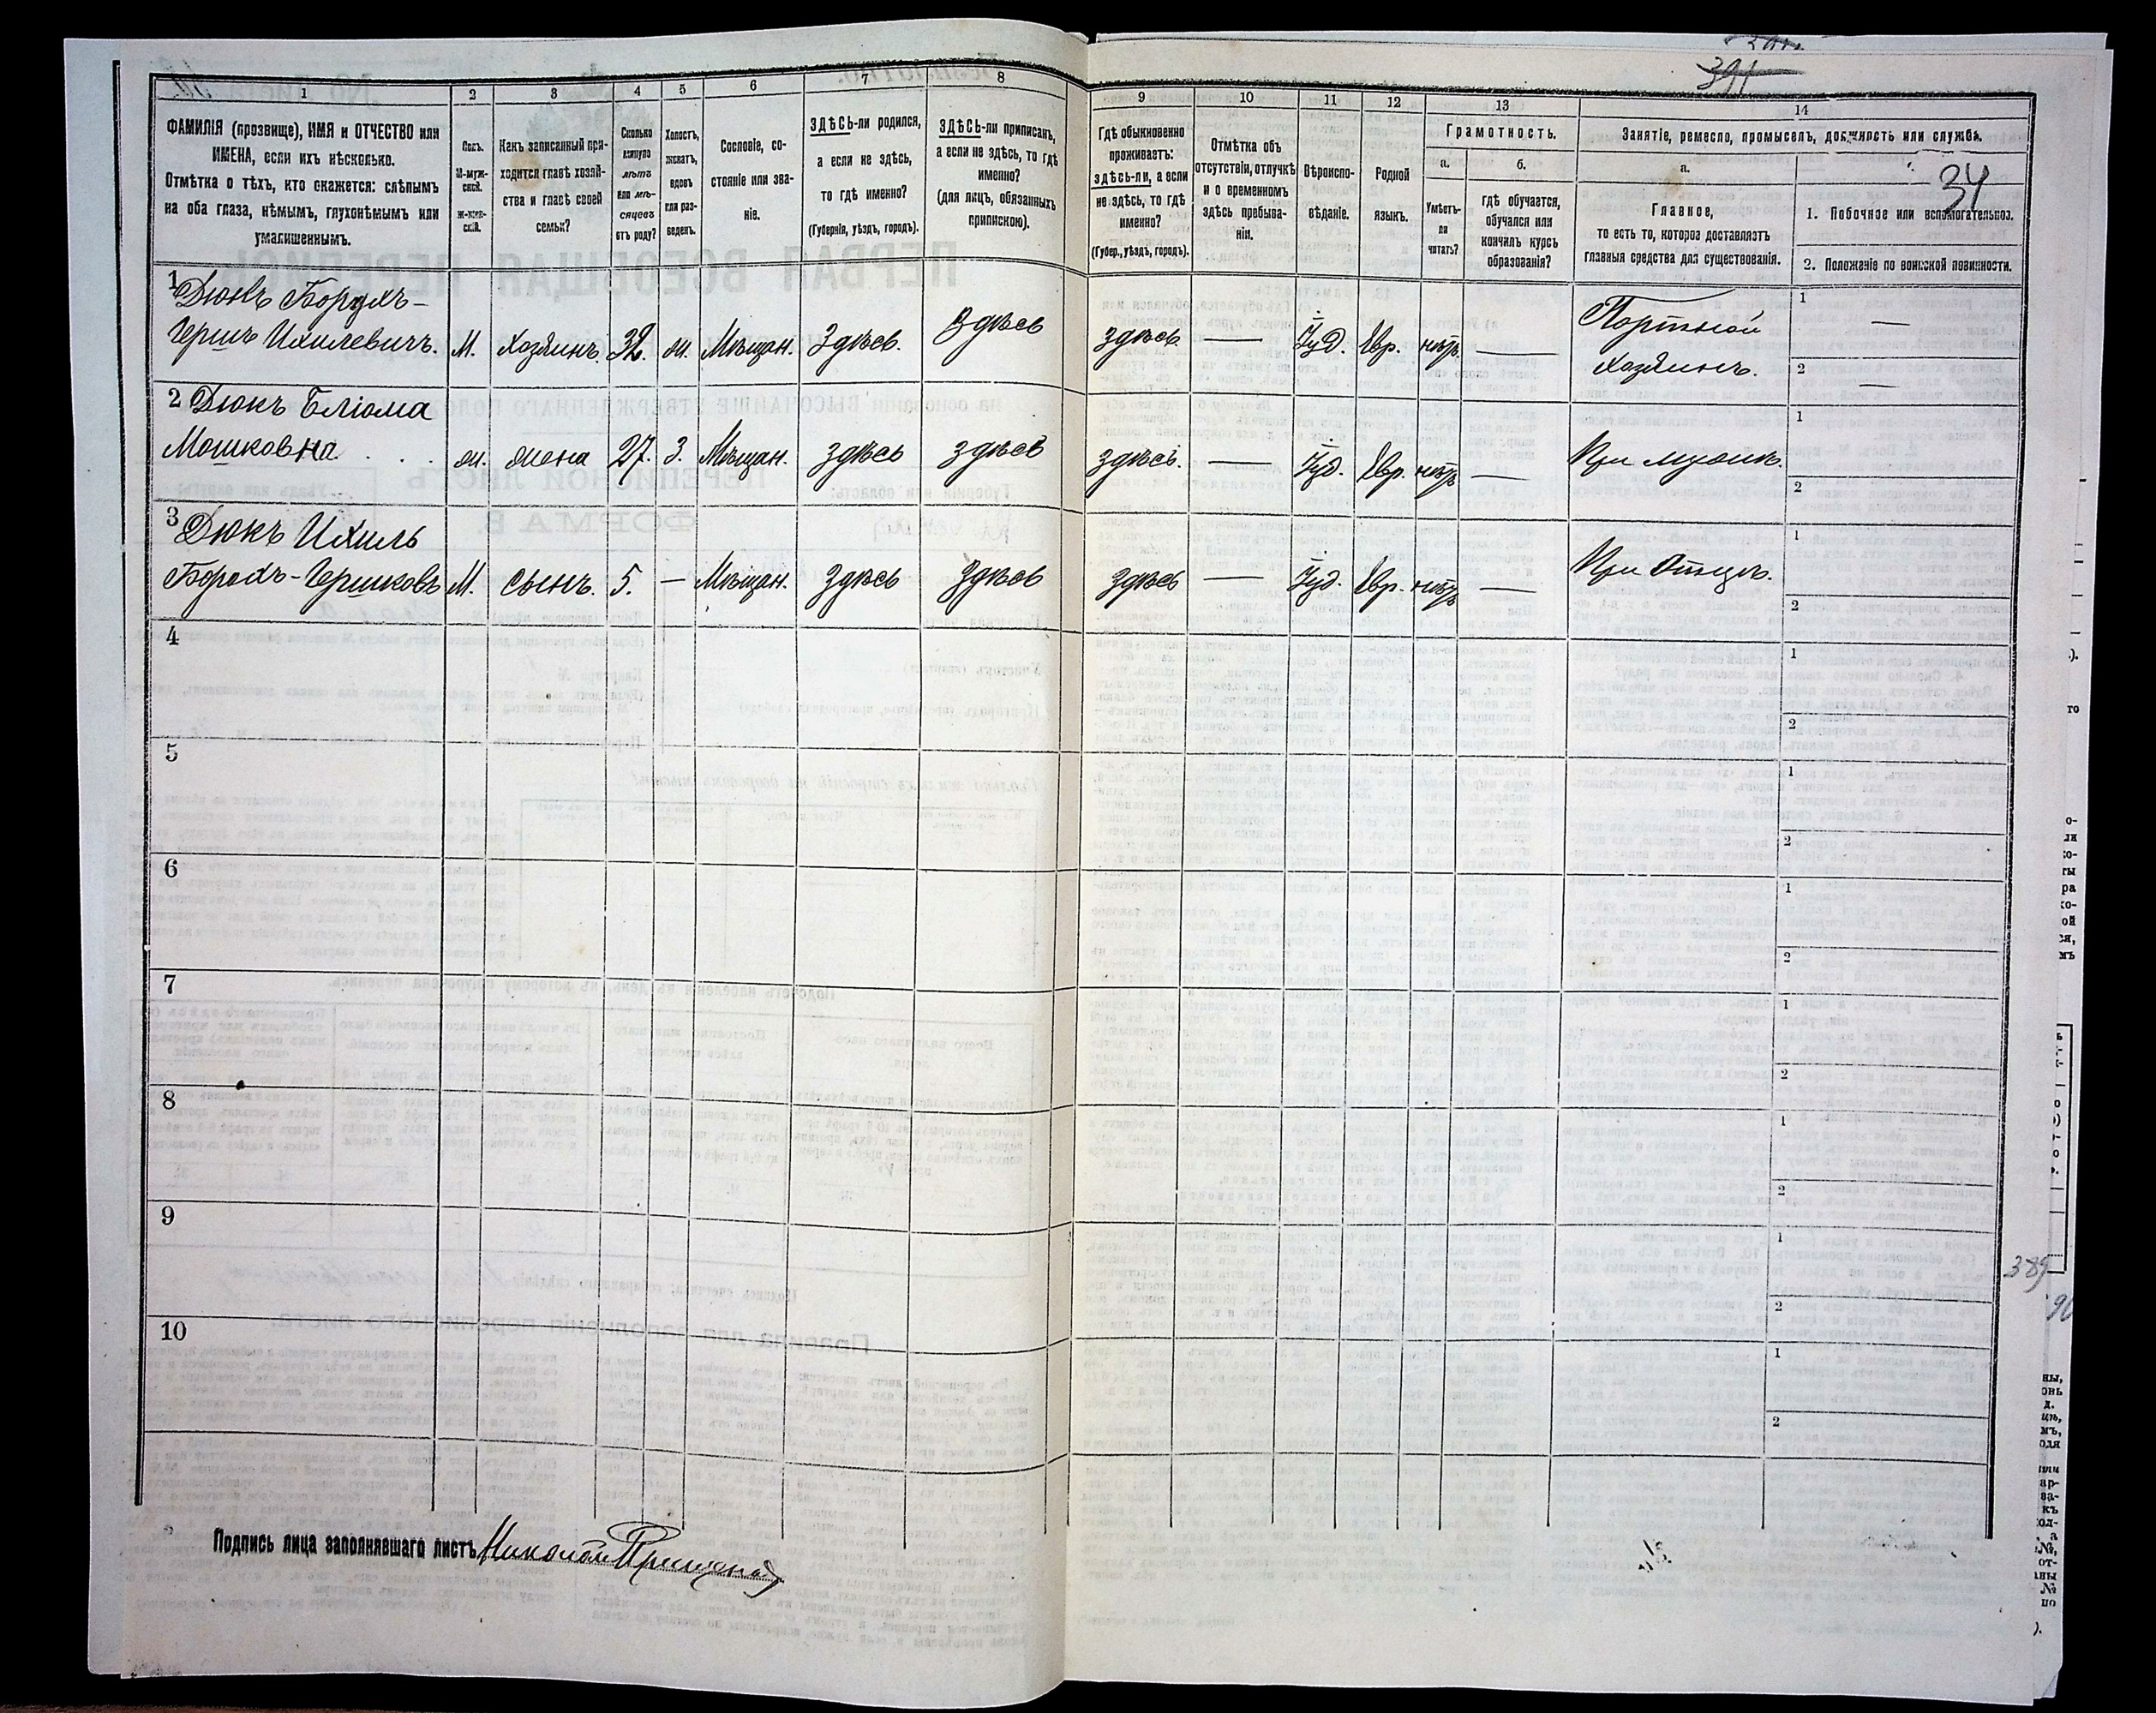 391
34
1 2 3 4 5 6 7 8 9 10 11 12 13 14
ФАМИЛІЯ (прозвище), ИМЯ и ОТЧЕСТВО или
ИМЕНА, если ихъ нѣсколько.
Отмѣтка о тѣхъ, кто окажется: слѣпымъ
на оба глаза, нѣмымъ, глухонѣмымъ или
умалишеннымъ.
Полъ.
М-муж-
ской.
ж-жен-
скій.
Какъ записанный при-
ходится главѣ хозяй-
ства и главѣ своей
семьи?
Сколько
минуло
лѣтъ
или мѣ-
сяцевъ
отъ роду?
Холостъ,
женатъ,
вдовъ
или раз-
веденъ.
Сословіе, со-
стояніе или зва-
ніе.
ЗДѢСЬ-ли родился,
а если не здѣсь,
то гдѣ именно?
(Губернія, уѣздъ, городъ).
ЗДѢСЬ-ли приписанъ,
а если не здѣсь, то гдѣ
именно?
(для лицъ, обязанныхъ
припискою).
Гдѣ обыкновенно
проживаетъ:
здѣсь-ли, а если
не здѣсь, то гдѣ
именно?
(Губер., уѣздъ, городъ).
Отмѣтка объ
отсутствіи, отлучкѣ
и о временномъ
здѣсь пребыва-
ніи.
Вѣроиспо-
вѣданіе.
Родной
языкъ.
Грамотность.
а. б.
Умѣетъ-
ли
читать?
гдѣ обучается,
обучался или
кончилъ курсъ
образованія?
Занятіе, ремесло, промыселъ, должность или служба.
а.
Главное,
то есть то, которое доставляетъ
главныя средства для существованія.
1. Побочное или вспомогательное.
2. Положеніе по воинской повинности.
1 Дюкъ Борухъ-
Гершъ Ихилевичъ. М. Хозяинъ. 32. ж. Мѣщан. Здѣсь. Здѣсь здѣсь — Іуд. Евр. нѣтъ — Портной
Хозяинъ.
1 —
2 —
2 Дюкъ Блюма
Мошковна. ж. жена 27. З. Мѣщан. здѣсь здѣсь здѣсь. — Іуд. Евр. нѣтъ — При мужѣ.
1
2
3 Дюкъ Ихиль
Борохъ-Гершковъ М. сынъ. 5. — Мѣщан. Здѣсь Здѣсь здѣсь — Іуд. Евр. нѣтъ — При Отцѣ.
1
2
4 1
2
5 1
2
6 1
2
7 1
2
8 1
2
9 1
2
10 1
2
389
90
Подпись лица заполнявшаго листъ Николай